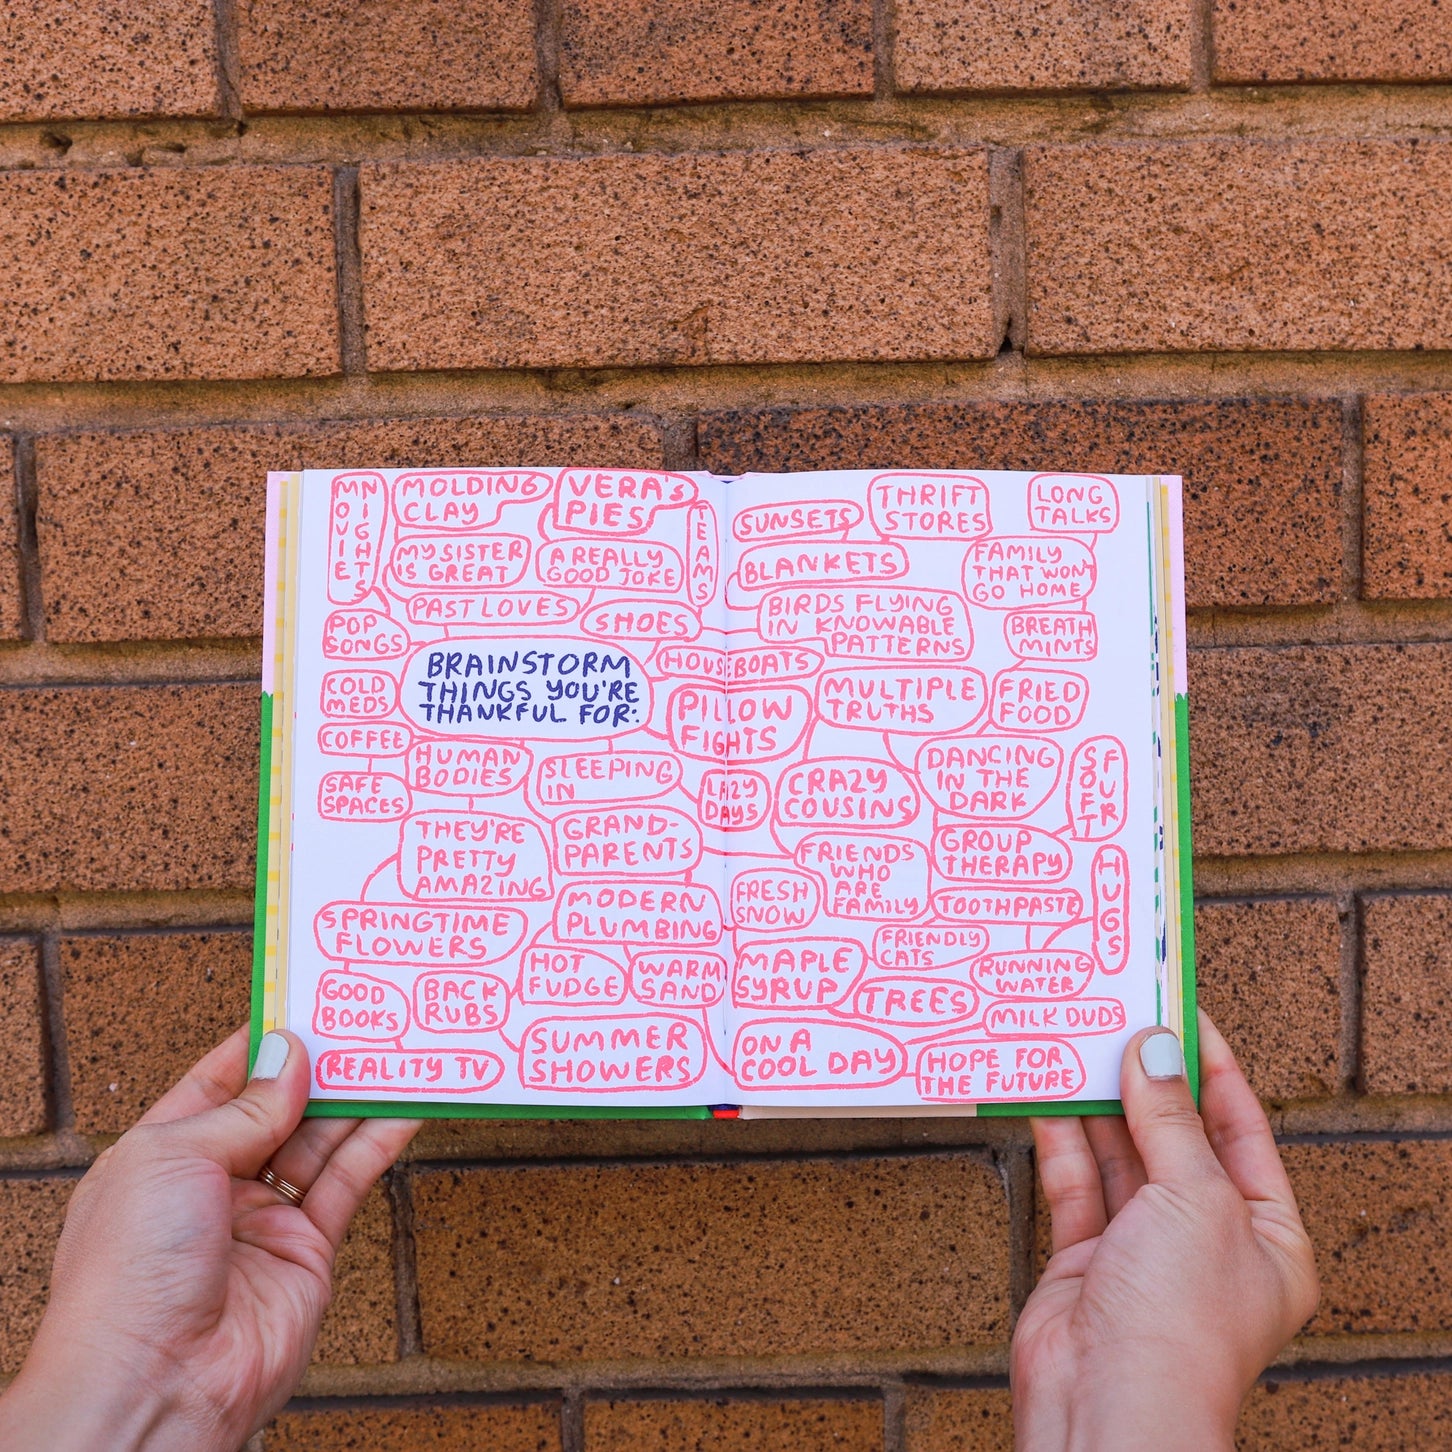 MOVIE
NIGHTS
MOLDING
CLAY
VERA'S
PIES
TEAMS
MY SISTER
IS GREAT
A REALLY
GOOD JOKE
PAST LOVES
SHOES
POP
SONGS
BRAINSTORM
THINGS YOU'RE
THANKFUL FOR:
HOUSEBOATS
COLD
MEDS
PILLOW
FIGHTS
COFFEE
HUMAN
BODIES
SLEEPING
IN
LAZY
DAYS
SAFE
SPACES
THEY'RE
PRETTY
AMAZING
GRAND-
PARENTS
MODERN
PLUMBING
SPRINGTIME
FLOWERS
HOT
FUDGE
WARM
SAND
GOOD
BOOKS
BACK
RUBS
SUMMER
SHOWERS
REALITY TV
SUNSETS
THRIFT
STORES
LONG
TALKS
BLANKETS
FAMILY
THAT WON'T
GO HOME
BIRDS FLYING
IN KNOWABLE
PATTERNS
BREATH
MINTS
MULTIPLE
TRUTHS
FRIED
FOOD
DANCING
IN THE
DARK
SOFT
FUR
CRAZY
COUSINS
GROUP
THERAPY
FRIENDS
WHO
ARE
FAMILY
HUGS
FRESH
SNOW
TOOTHPASTE
FRIENDLY
CATS
MAPLE
SYRUP
RUNNING
WATER
TREES
MILK DUDS
ON A
COOL DAY
HOPE FOR
THE FUTURE